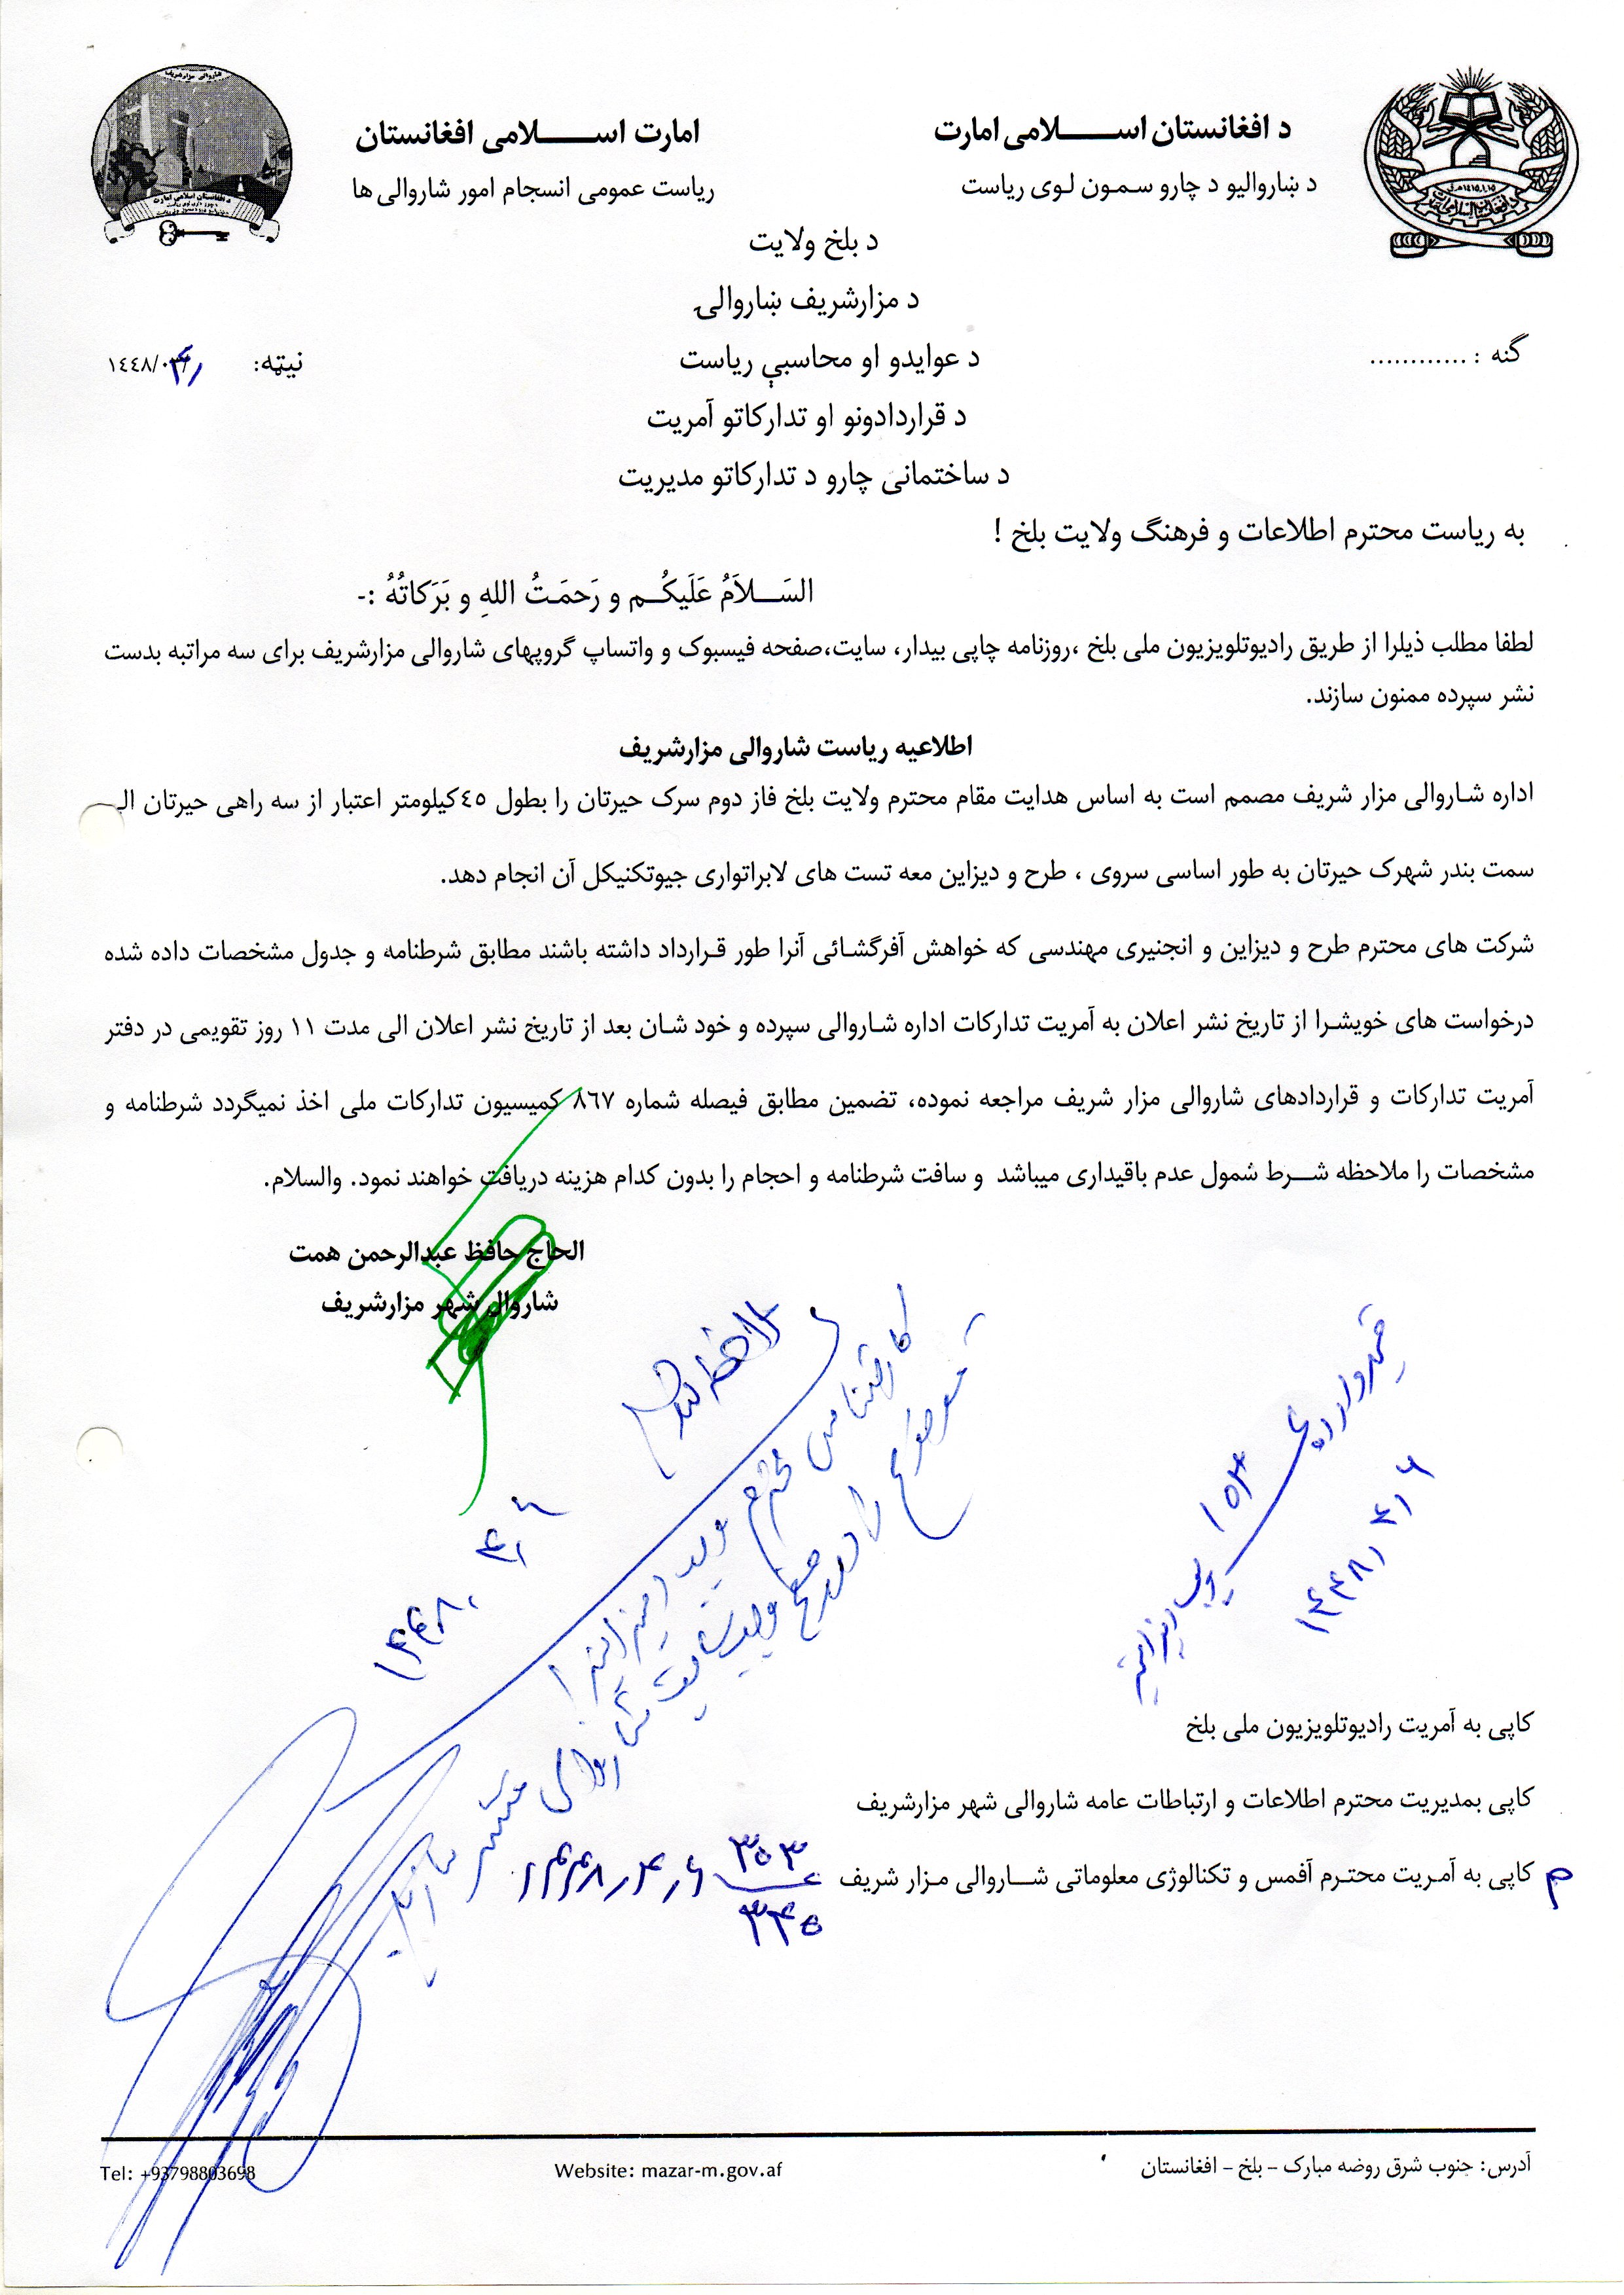 د افغانستان اســـــلامی امارت
امارت اســـــلامی افغانستان
د ښاروالیو د چارو سـمـون لـوی ریاست
ریاست عمومی انسجام امور شاروالی ها
د بلخ ولایت
د مزارشریف ښاروالۍ
د عوایدو او محاسبې ریاست
گنه : ............
نیټه:
د قراردادونو او تدارکاتو آمریت
د ساختمانی چارو د تدارکاتو مدیریت
به ریاست محترم اطلاعات و فرهنگ ولایت بلخ !
السَـــلاَمُ عَلَیکُــم و رَحمَـتُ اللهِ و بَرَکاتُهُ :-
لطفا مطلب ذیلرا از طریق رادیوتلویزیون ملی بلخ ،روزنامه چاپی بیدار، سایت،صفحه فیسبوک و واتساپ گروپهای شاروالی مزارشریف برای سه مراتبه بدست
نشر سپرده ممنون سازند.
اطلاعیه ریاست شاروالی مزارشریف
اداره شـاروالی مزار شریف مصمم است به اساس هدایت مقام محترم ولایت بلخ فاز دوم سرک حیرتان را بطول ٤٥کیلومتر اعتبار از سه راهی حیرتان الـ
سمت بندر شهرک حیرتان به طور اساسی سروی ، طرح و دیزاین معه تست های لابراتواری جیوتکنیکل آن انجام دهد.
شرکت های محترم طرح و دیزاین و انجنیری مهندسی که خواهش آفرگشـائی آنرا طور قـرارداد داشته باشند مطابق شرطنامه و جدول مشخصات داده شده
درخواست های خویشـرا از تاریخ نشر اعلان به آمریت تدارکات اداره شـاروالی سپرده و خود شـان بعد از تاریخ نشر اعلان الی مدت ١١ روز تقویمی در دفتر
آمریت تدارکات و قراردادهای شاروالی مزار شریف مراجعه نموده، تضمین مطابق فیصله شماره ٨٦٧ کمیسیون تدارکات ملی اخذ نمیگردد شرطنامه و
مشخصات را ملاحظه شـــرط شمول عدم باقیداری میباشد و سافت شرطنامه و احجام را بدون کدام هزینه دریافت خواهند نمود. والسلام.
الحاج حافظ عبدالرحمن همت
شاروال شهر مزارشریف
کاپی به آمریت رادیوتلویزیون ملی بلخ
کاپی بمدیریت محترم اطلاعات و ارتباطات عامه شاروالی شهر مزارشریف
کاپی به آمـریت محتـرم آفمس و تکنالوژی معلوماتی شـــاروالی مـزار شریف
۳۵۳
۳۴۵
۱۴۴۸,۳,۶
آدرس: جنوب شرق روضه مبارک – بلخ – افغانستان
Website: mazar-m.gov.af
Tel: +93798803698